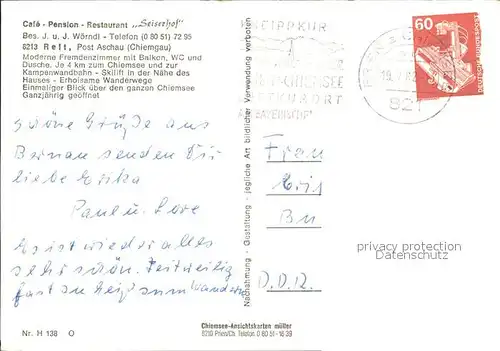 Café - Pension - Restaurant „Seiserhof"
Bes. J. u. J. Wörndl - Telefon (0 80 51) 72 95
8213 Reit, Post Aschau (Chiemgau)
Moderne Fremdenzimmer mit Balkon, WC und
Dusche. Je 4 km zum Chiemsee und zur
Kampenwandbahn - Skilift in der Nähe des
Hauses - Erholsame Wanderwege
Einmaliger Blick über den ganzen Chiemsee
Ganzjährig geöffnet
schöne Grüße aus
Bernau senden Dir
liebe Erika
Paul u. Lore
Es ist wieder alles
sehr schön. Zeitweilig
fast zu heiß zum Wandern
Nr. H 138 O
Nachahmung - Gestaltung - jegliche Art bildlicher Verwendung verboten
Chiemsee-Ansichtskarten müller
8210 Prien/Ch. Telefon 0 80 51 - 16 39
KNEIPPKUR
CHIEMSEE
821
60
DEUTSCHE BUNDESPOST
Frau
D.D.R.
privacy protection
Datenschutz